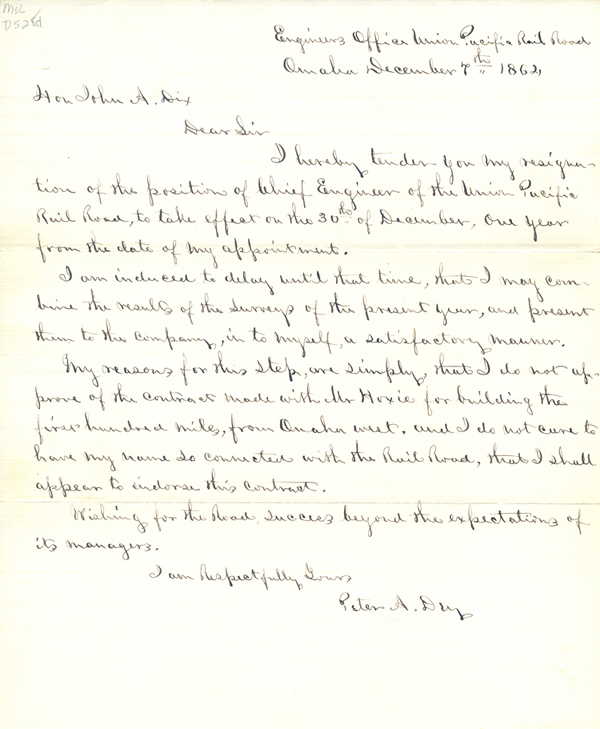 MsL
D52rd
Engineers Office Union Pacific Rail Road
Omaha December 7th 1864
Hon John A. Dix
Dear Sir
I hereby tender you my resigna-
tion of the position of Chief Engineer of the Union Pacific
Rail Road, to take effect on the 30th of December, one year
from the date of my appointment.
I am induced to delay until that time, that I may com-
bine the results of the surveys of the present year, and present
them to the company, in to myself, a satisfactory manner.
My reasons for this step, are simply, that I do not ap-
prove of the contract made with Mr Hoxie for building the
first hundred miles, from Omaha west. and I do not care to
have my name so connected with the Rail Road, that I shall
appear to indorse this contract.
Wishing for the Road, success beyond the expectations of
its managers.
I am Respectfully Yours
Peter A. Dey